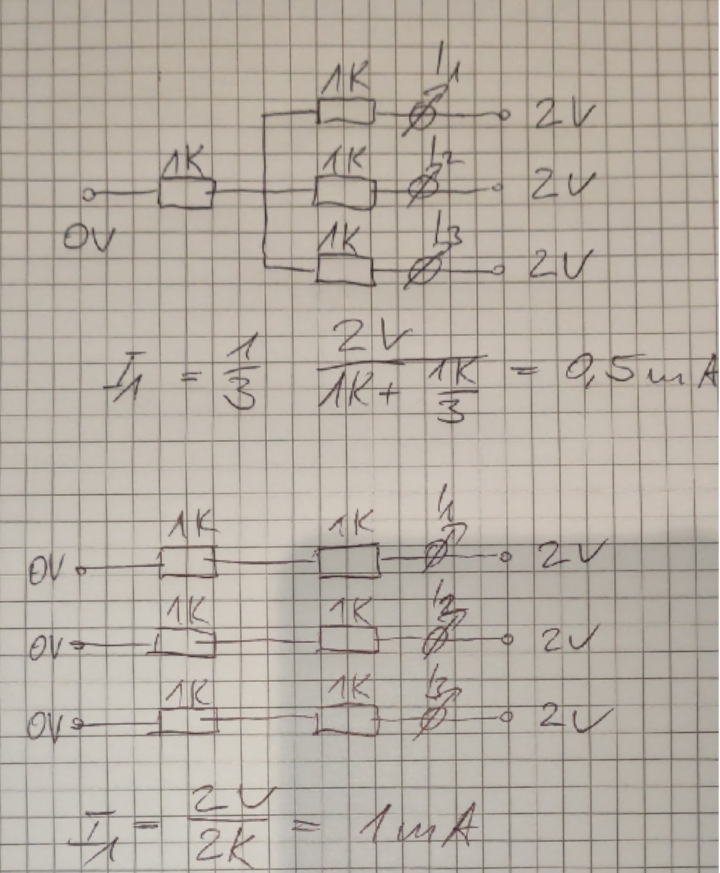 1K I1 2V
1K 1K I2 2V
0V 1K I3 2V
I1 = 1/3 2V/(1K + 1K/3) = 0,5mA
1K 1K I1
0V 2V
1K 1K I2
0V 2V
1K 1K I3
0V 2V
I1 = 2V/2K = 1mA